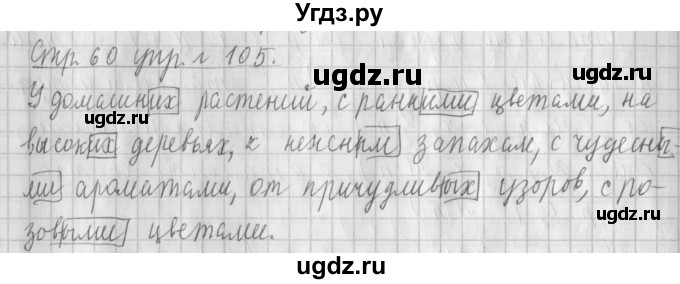 Угдз.ру
Стр. 60 упр. г 105.
ugdz.ru ugdz.ru
У домашних растений, с ранними цветами, на
высоких деревьях, к нежным запахам, с чудесны-
ugdz.ru
ми ароматами, от причудливых узоров, с ро-
зовыми цветами.
ugdz.ru ugdz.ru
ugdz.ru